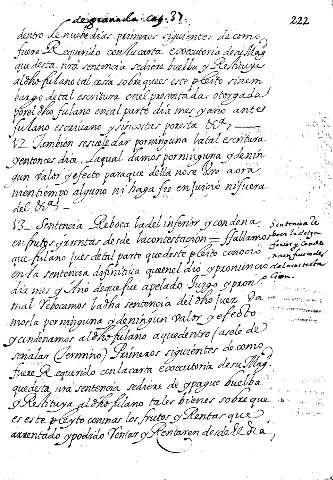 de granada. cap. 37. 222
dentro de nuebe dias primeros siguientes de como
fuere Requerido con la carta executoria de su Mag
que desta nra sentencia se diere buelba y Restituya
al dho fulano tal cosa sobre que es este pleito sin em
bargo de tal escritura en el presentada otorgada
por el dho fulano en tal parte dia mes y ano ante
fulano escrivano y sin costas por esta &a
12. Tambien se suele dar por ninguna la tal escritura
y entonces dira, la qual damos por ninguna y de nin
gun valor y efecto para que della no se Use aora
ni en tiempo alguno ni haga fee en juicio ni fuera
del &a
13. Sentencia Reboca la del inferior y condena
en frutos y rentas desde la contestacion = fallamos
que fulano jues de tal parte que deste pleito conocio
en la sentencia difinitiva que en el dio y pronuncio
dia mes y Año de que fue apelado Juzgo y pron.
mal Rebocamos la dha sentencia del dho Juez Da
mosla por ninguna y de ningun valor y efecto
y condenamos al dho fulano a que dentro (a se le de
señalar termino) Primeros siguientes de como
fuere Requerido con la carta executoria de su Mag
que desta nra sentencia se diere de y pague buelba
y Restituya al dho fulano tales bienes sobre que
es este pleyto con mas los frutos y Rentas que
an rentado y podido Rentar y Rentaren desde el dia
Sentencia Re
boca la del in
ferior y Conde
na en frutos des
de la contesta
cion.